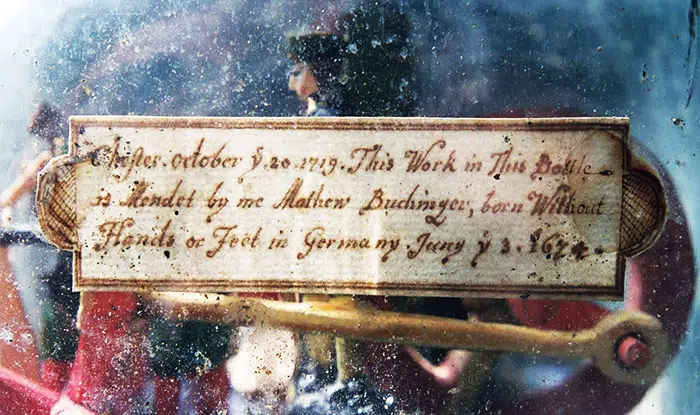 Chester. october ÿ. 20. 1719. This Work in This Bottle
is Mendet by me Mathew Buchinger, born Without
Hands or Feet in Germany Juny ÿ 3. 1674